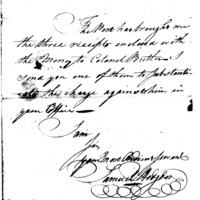 The Post has brought me
the three receipts enclosed with
the Money to Colonel Butler I
send you one of them to substanti-
ate the charge against him in
your Office
I am
Sir
your most Obedient servant
Samuel Hodgdon